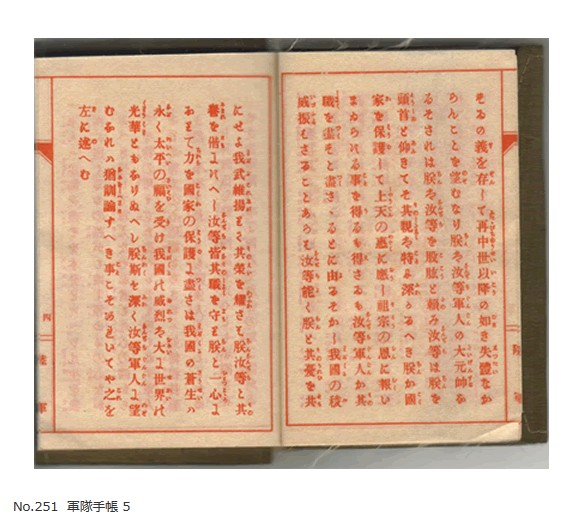 するの義を存して再中世以降の如き失體なか
らんことを望むなり朕は汝等軍人の大元帥な
るそされは朕は汝等を股肱と頼み汝等は朕を
頭首と仰きてそ其親は特に深かるへき朕か國
家を保護して上天の惠に應し祖宗の恩に報い
まゐらする事を得るも得さるも汝等軍人か其
職を盡すと盡さゝるとに由るそかし我國の稜
威振はさることあらは汝等能く朕と其憂を共
にせよ我武維揚りて其榮を耀さは朕汝等と其
譽を偕にすへし汝等皆其職を守り朕と一心に
なりて力を國家の保護に盡さは我國の蒼生は
永く太平の福を受け我國の威烈は大に世界の
光華ともなりぬへし朕斯も深く汝等軍人に望
むなれは猶訓諭すへき事こそあれいてや之を
左に述へむ
四
陸軍
No.251 軍隊手帳 5